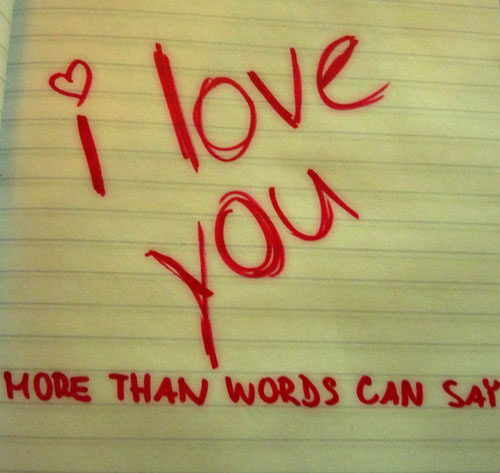 i love
you
MORE THAN WORDS CAN SAY